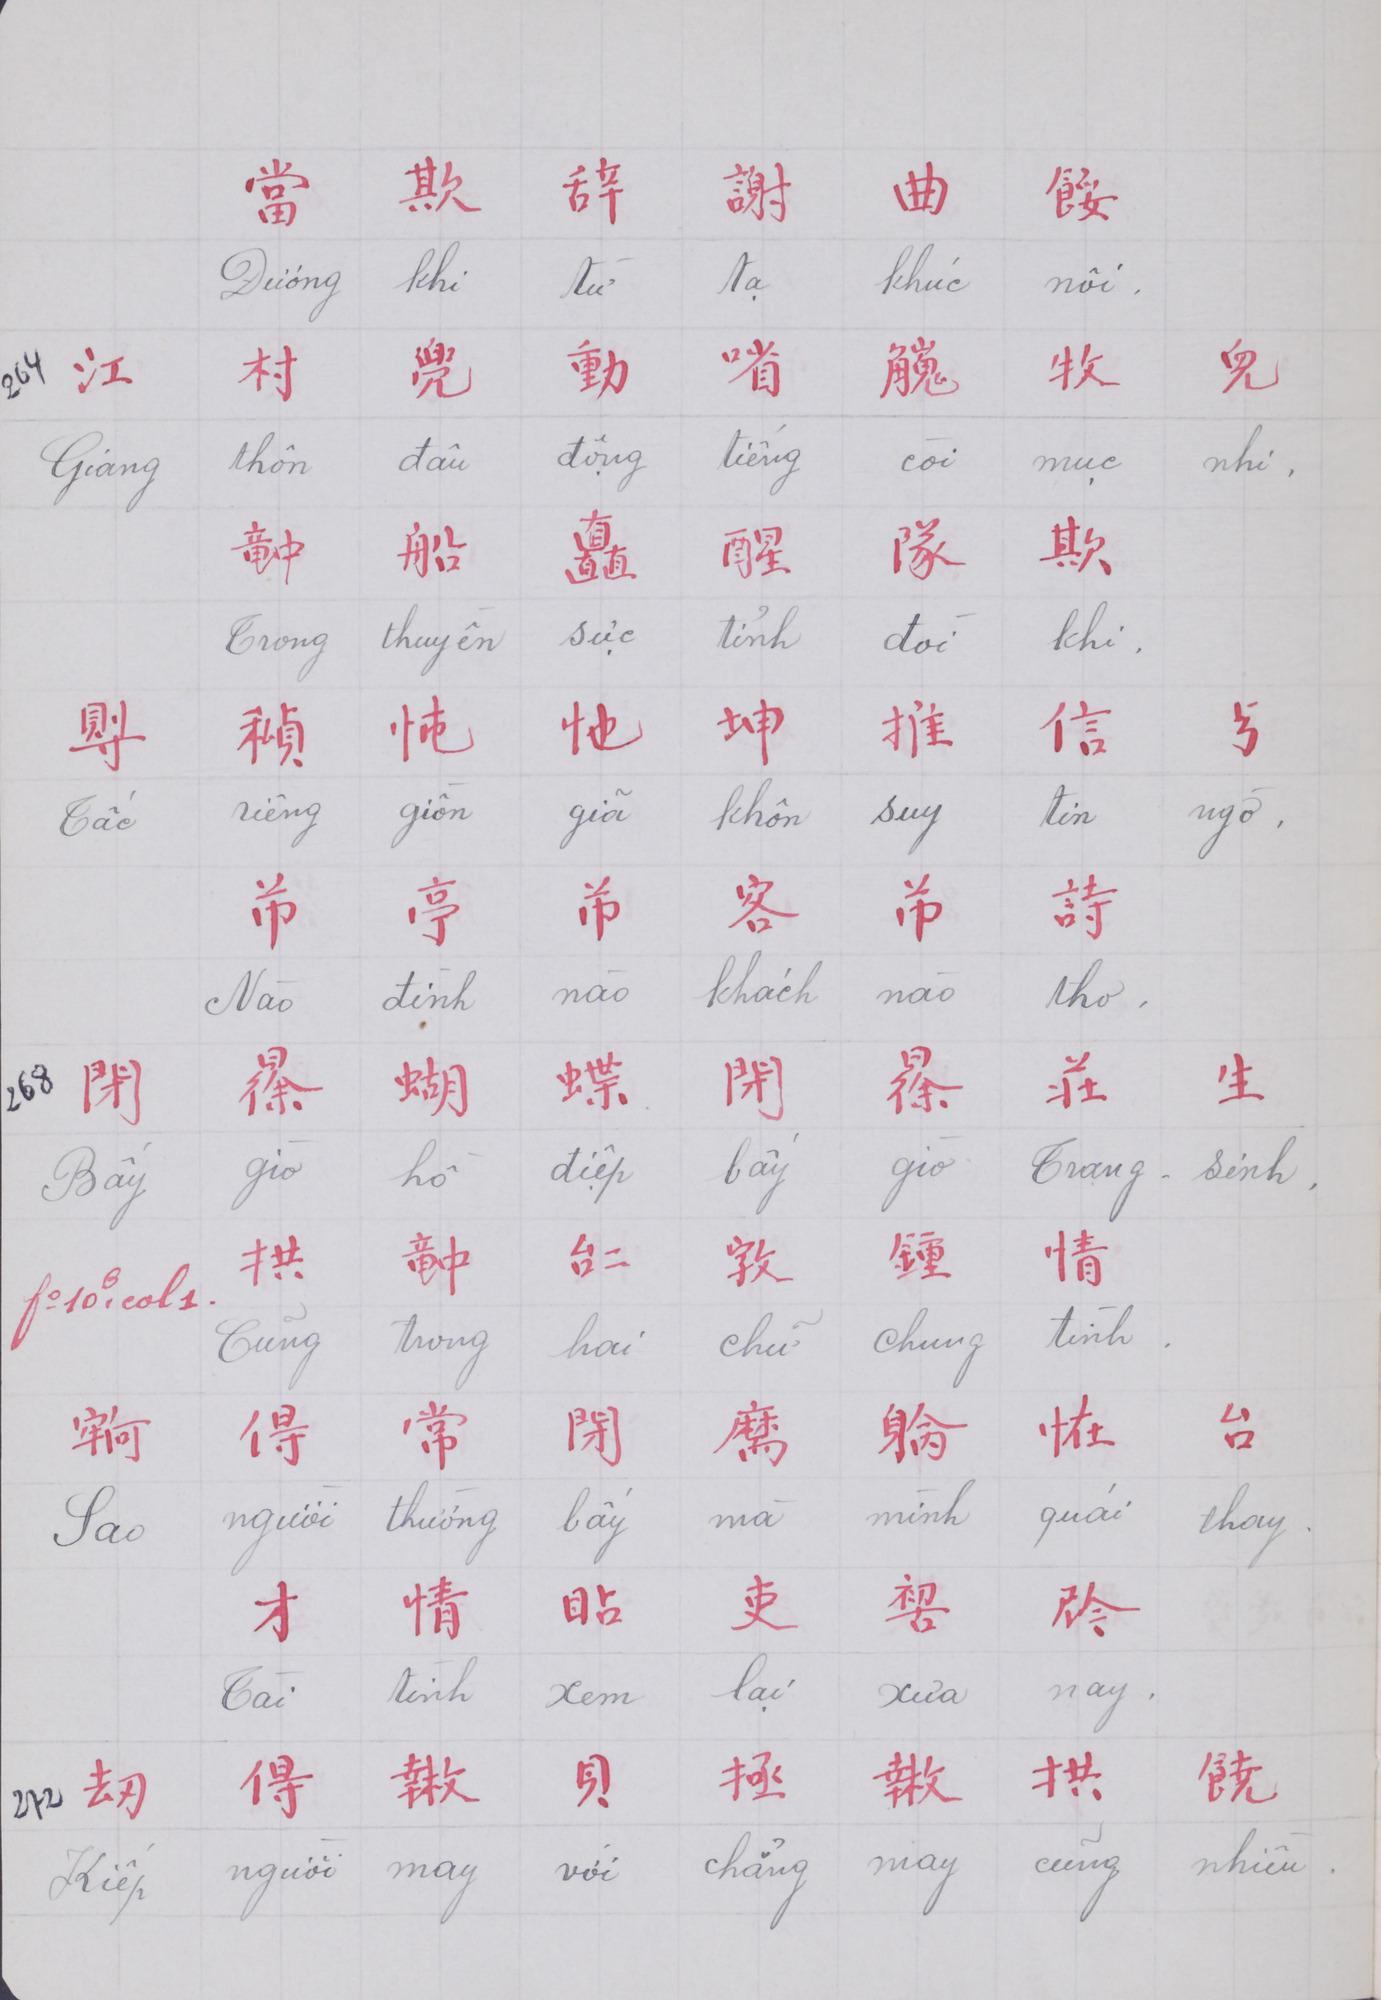 當 欺 辞 謝 曲 餒
Đương khi từ tạ khúc nôi.
264 江 村 覺 動 㗂 牧 兒
Giang thôn đâu động tiếng còi mục nhi.
𥪝 船 矗 醒 隊 欺
Trong thuyền sực tỉnh đòi khi.
忳 坤 推 信 𠃅
Tấc riêng giồn giã khôn suy tin ngờ.
芇 亭 芇 客 芇 詩
Nào đình nào khách nào thơ.
268 閉 𣇞 蝴 蝶 閉 𣇞 莊 生
Bấy giờ hồ điệp bấy giờ Trang-sinh.
拱 𥪝 𠄩 𡦂 鍾 情
fº 10ᴮ. col 1.
Cũng trong hai chữ chung tình.
𡫡 㝵 常 閉 麽 恠 台
Sao người thường bấy mà mình quái thay.
才 情 䀡 吏 𠸗 𫢩
Tài tình xem lại xưa nay.
272 刼 㝵 𢆧 貝 拯 𢆧 拱 饒
Kiếp người may với chẳng may cũng nhiều.